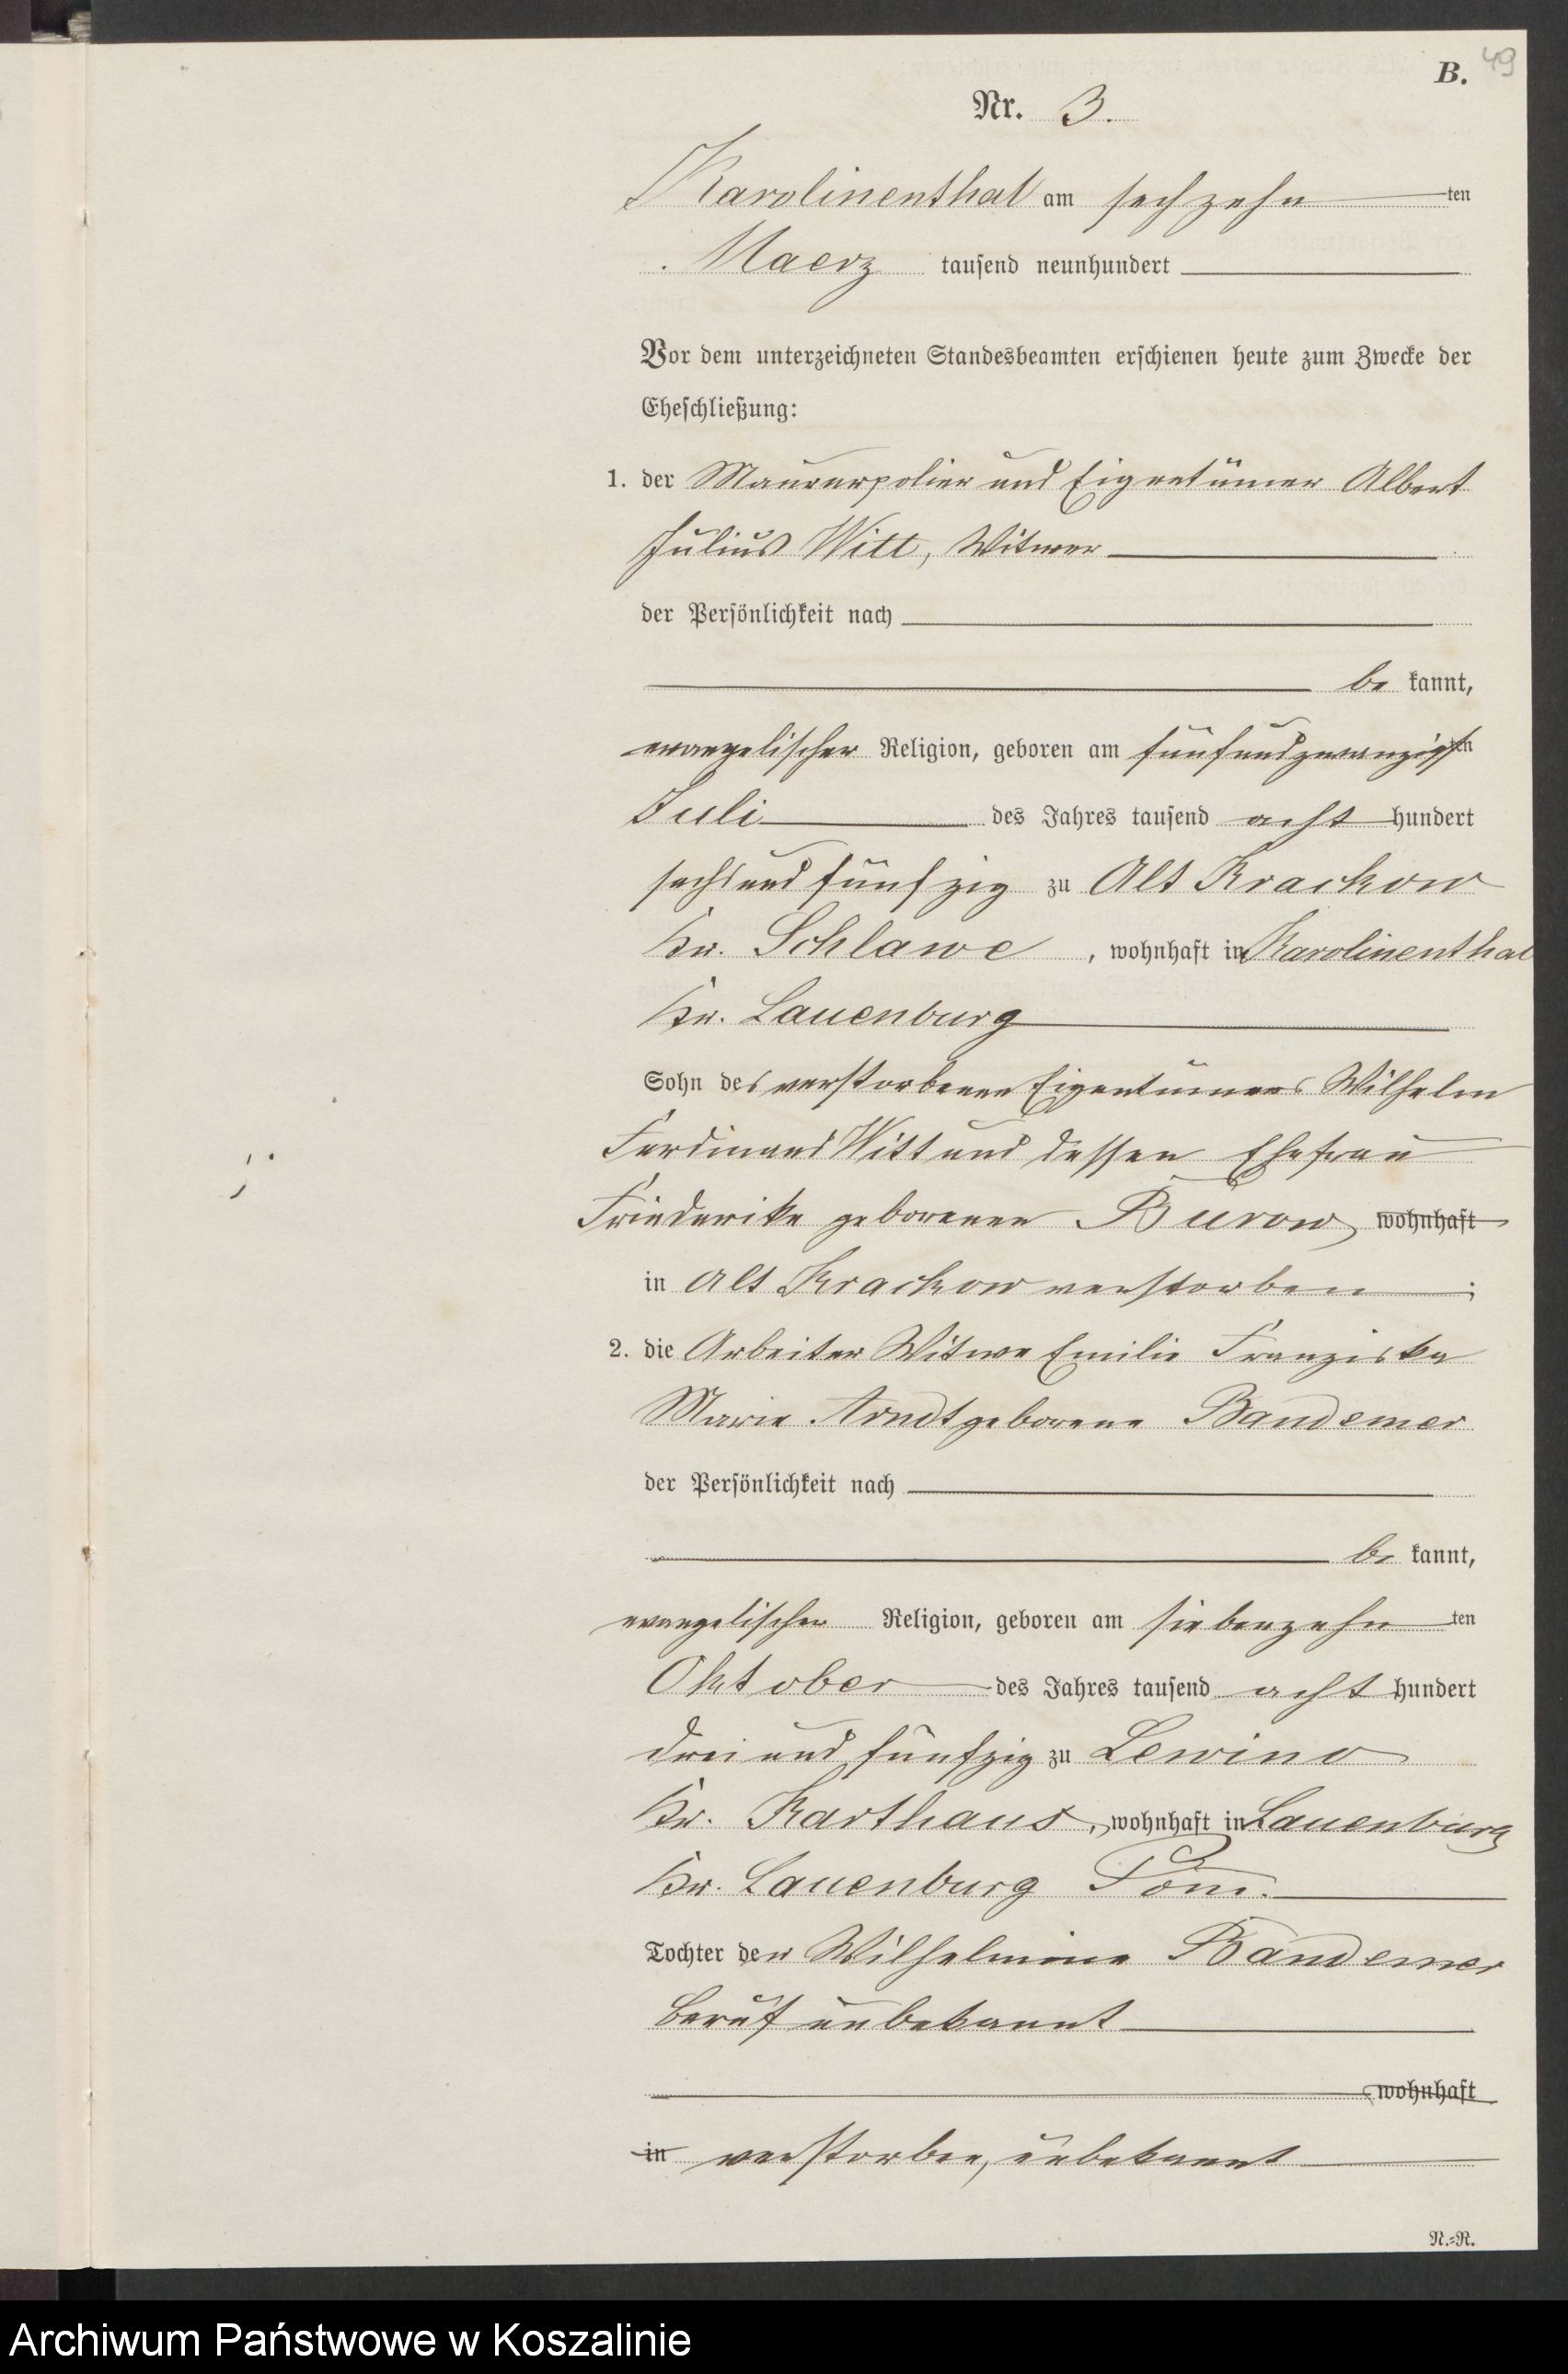 B. 49
Nr. 3.
Karolinenthal am sechzehn ten
Maerz tausend neunhundert
Vor dem unterzeichneten Standesbeamten erschienen heute zum Zwecke der
Eheschließung:
1. der Maurerpolier und Eigentümer Albert
Julius Witt, Witwer
der Persönlichkeit nach
be kannt,
evangelischer Religion, geboren am fünfundzwanzigsten
Juli des Jahres tausend acht hundert
sechsund fünfzig zu Alt Krackow
Kr. Schlawe, wohnhaft in Karolinenthal
Kr. Lauenburg
Sohn des verstorbenen Eigentümers Wilhelm
Ferdinand Witt und dessen Ehefrau
Friederike geborenen Burow, wohnhaft
in Alt Krackow verstorben ;
2. die Arbeiter Witwe Emilie Franziska
Marie Arndt geborene Bandemer
der Persönlichkeit nach
be kannt,
evangelischer Religion, geboren am siebenzehn ten
Oktober des Jahres tausend acht hundert
drei und fünfzig zu Lewino
Kr. Karthaus, wohnhaft in Lauenburg
Kr. Lauenburg Pom.
Tochter der Wilhelmine Bandemer
Beruf unbekannt
wohnhaft
in verstorben, unbekannt
N.=R.
Archiwum Państwowe w Koszalinie